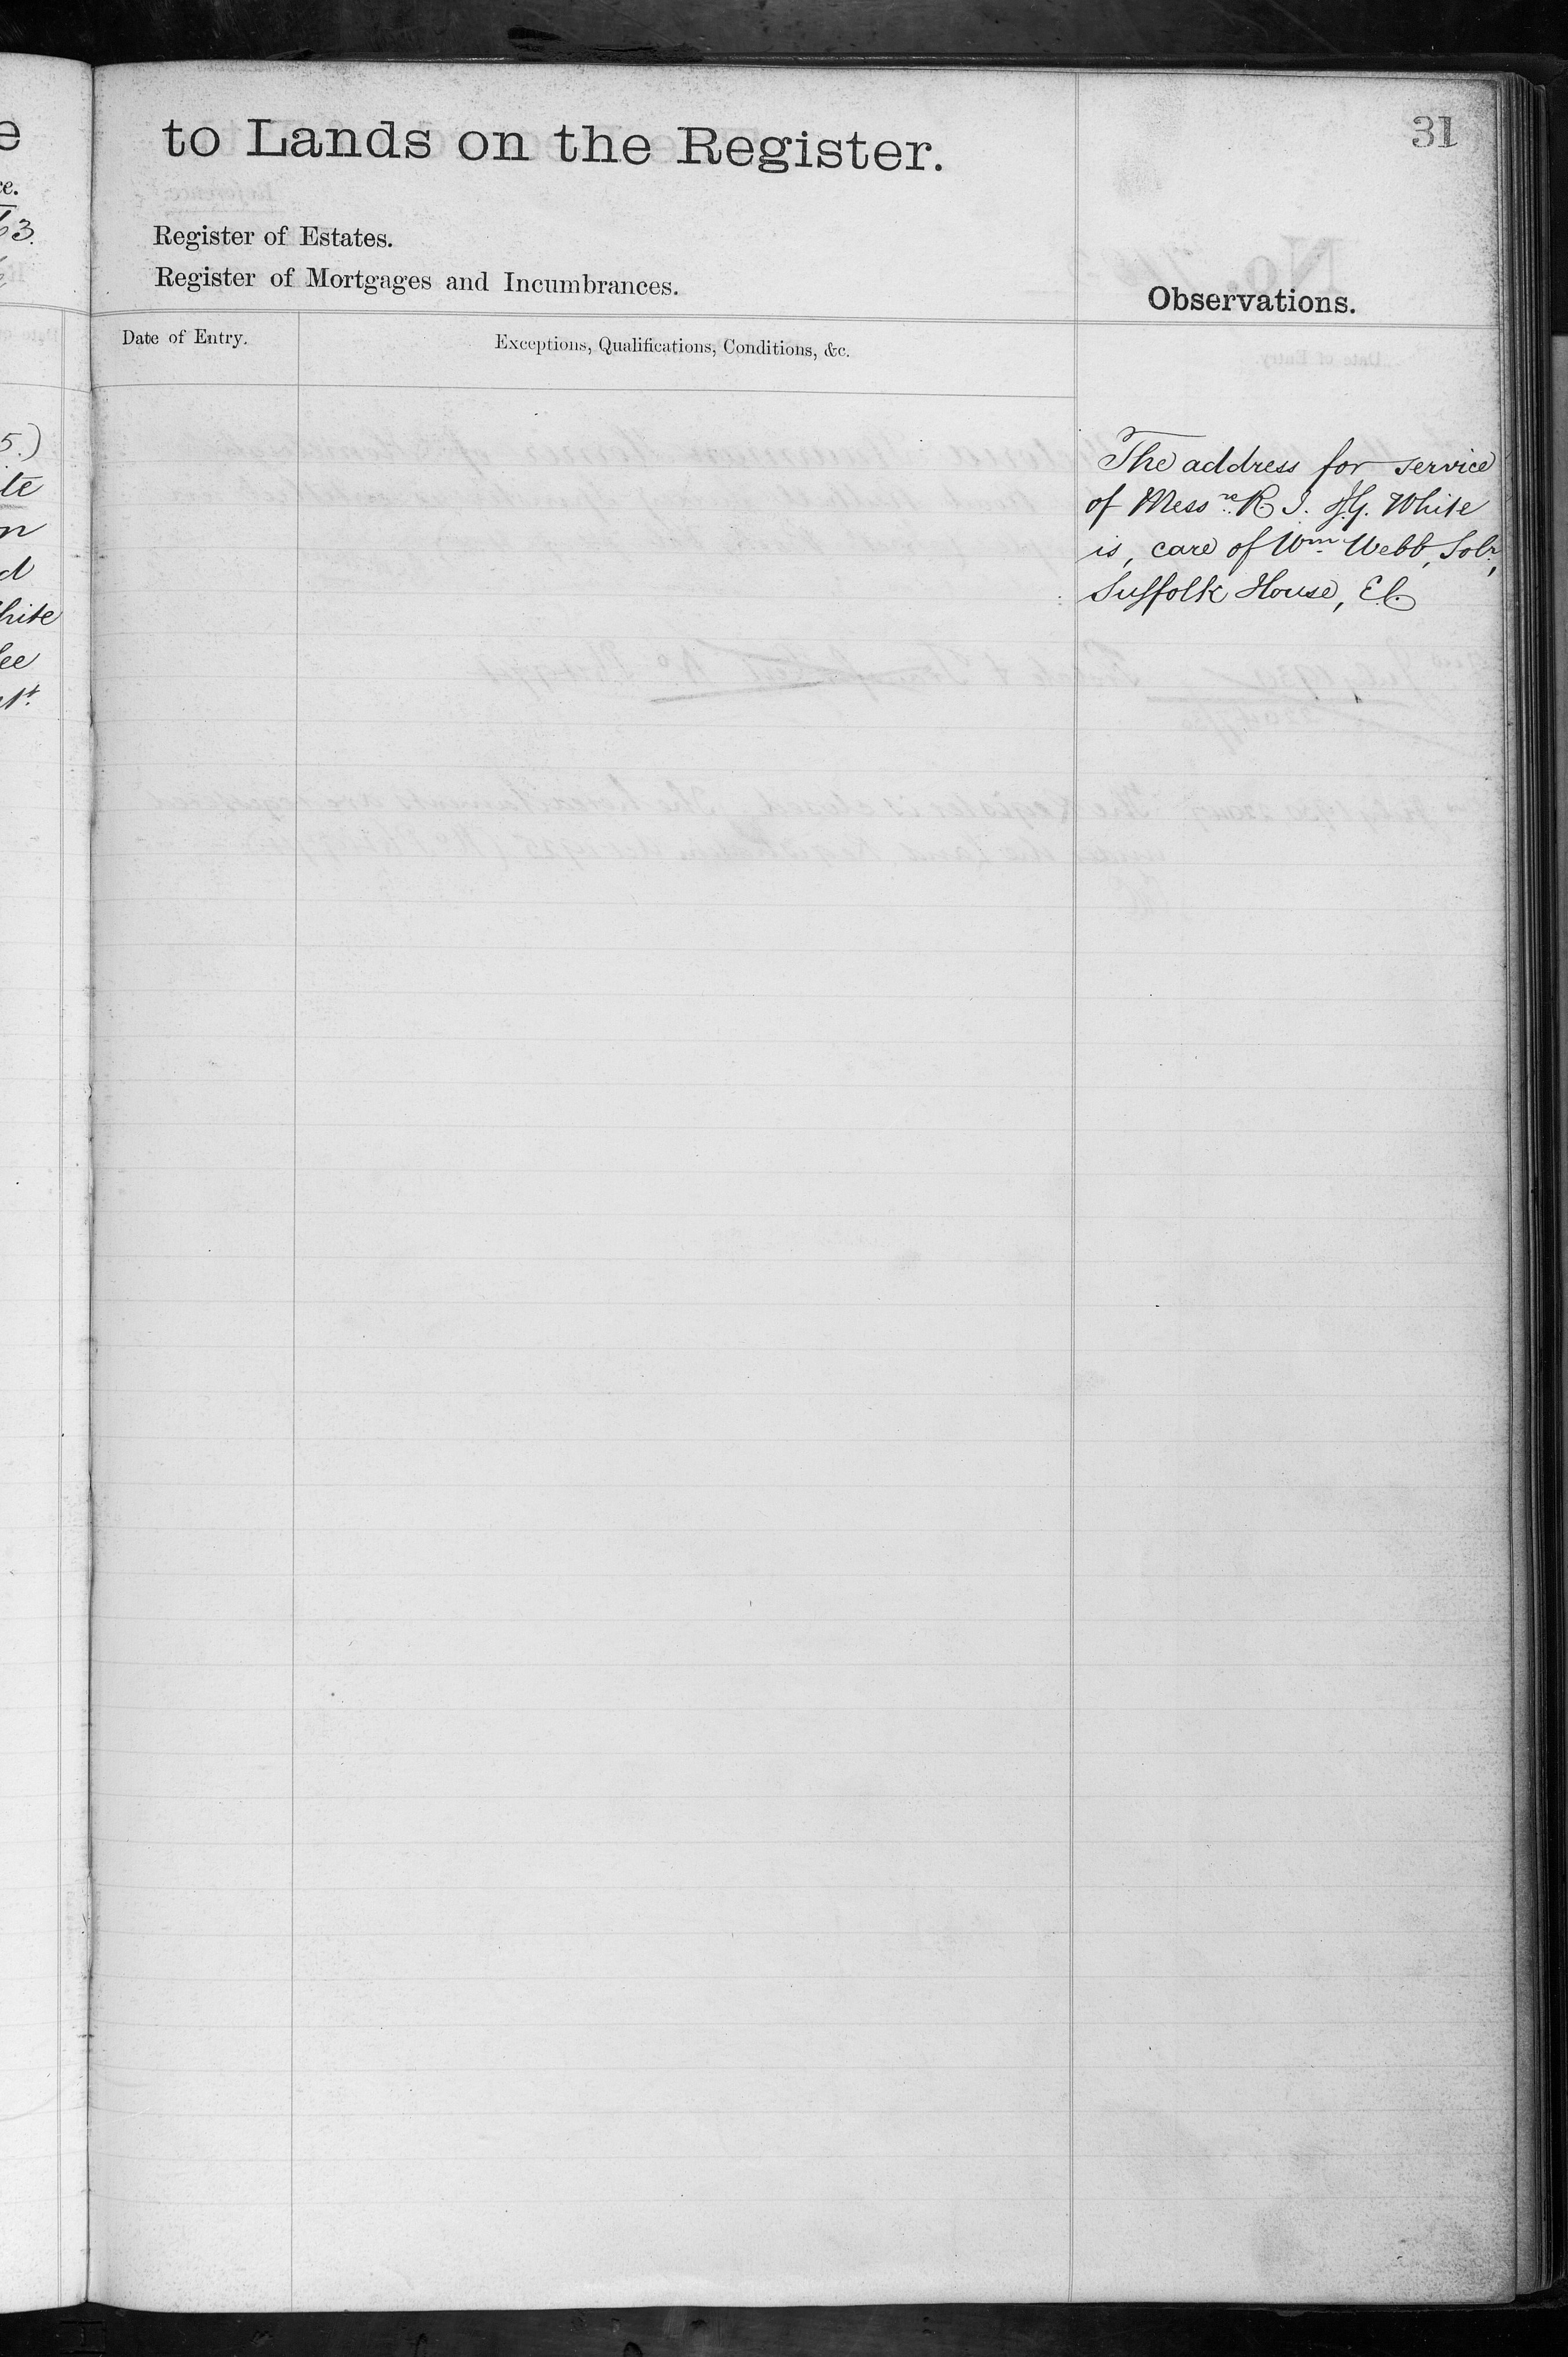 31
to Lands on the Register.
Register of Estates.
Register of Mortgages and Incumbrances.
Observations.
Date of Entry.
Exceptions, Qualifications, Conditions, &c.
The address for service
of Mess.rs R. J. & G. White
is, care of Wm. Webb, Solr,
Suffolk House, E.C.
e
ce.
63.
5.)
te
n
d
hite
ee